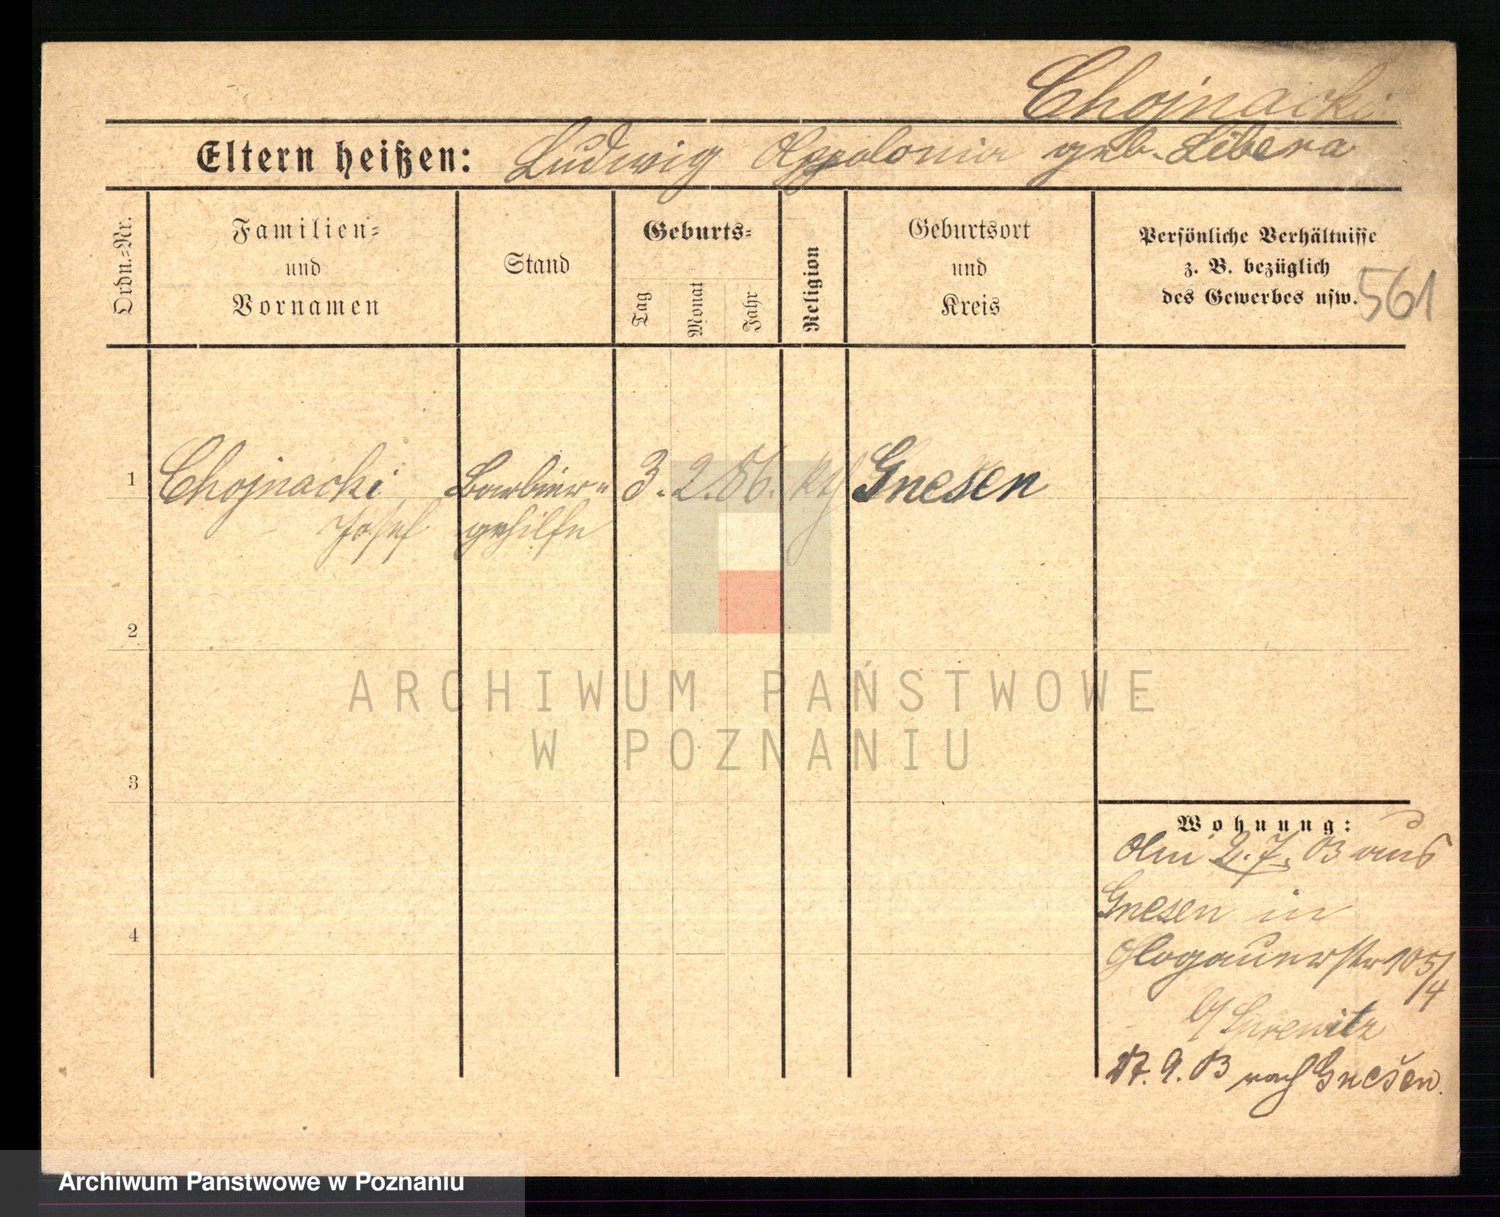 Chojnacki
Eltern heißen: Ludwig Appolonia geb. Libera
Ordn.-Nr.
Familien-
und
Vornamen
Stand
Geburts-
Tag
Monat
Jahr
Religion
Geburtsort
und
Kreis
Persönliche Verhältnisse
z. B. bezüglich
des Gewerbes usw.
561
1 Chojnacki Barbier- 3. 2. 86. kth Gnesen
Josef gehilfe
2
ARCHIWUM PAŃSTWOWE
W POZNANIU
3
Wohnung:
Am 2. 7. 03 aus
Gnesen in
4
Glogauerstr 105/4
b/
17. 9. 03 nach Gnesen.
Archiwum Państwowe w Poznaniu